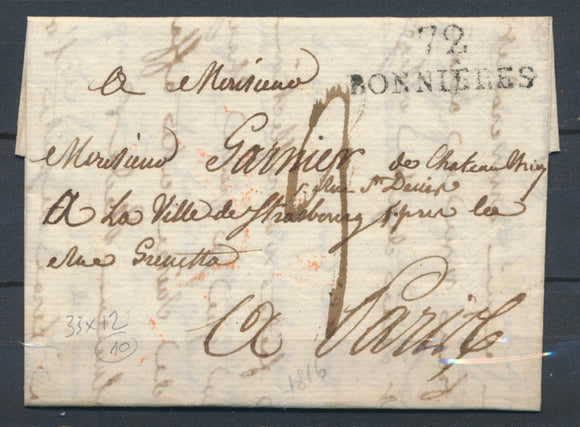 72
BONNIERES
A Monsieur
Monsieur Garnier de Chateau
Rue St Denis
A La Ville de Strasbourg près la
Rue Grenetta
A Paris
33x12
10
1816